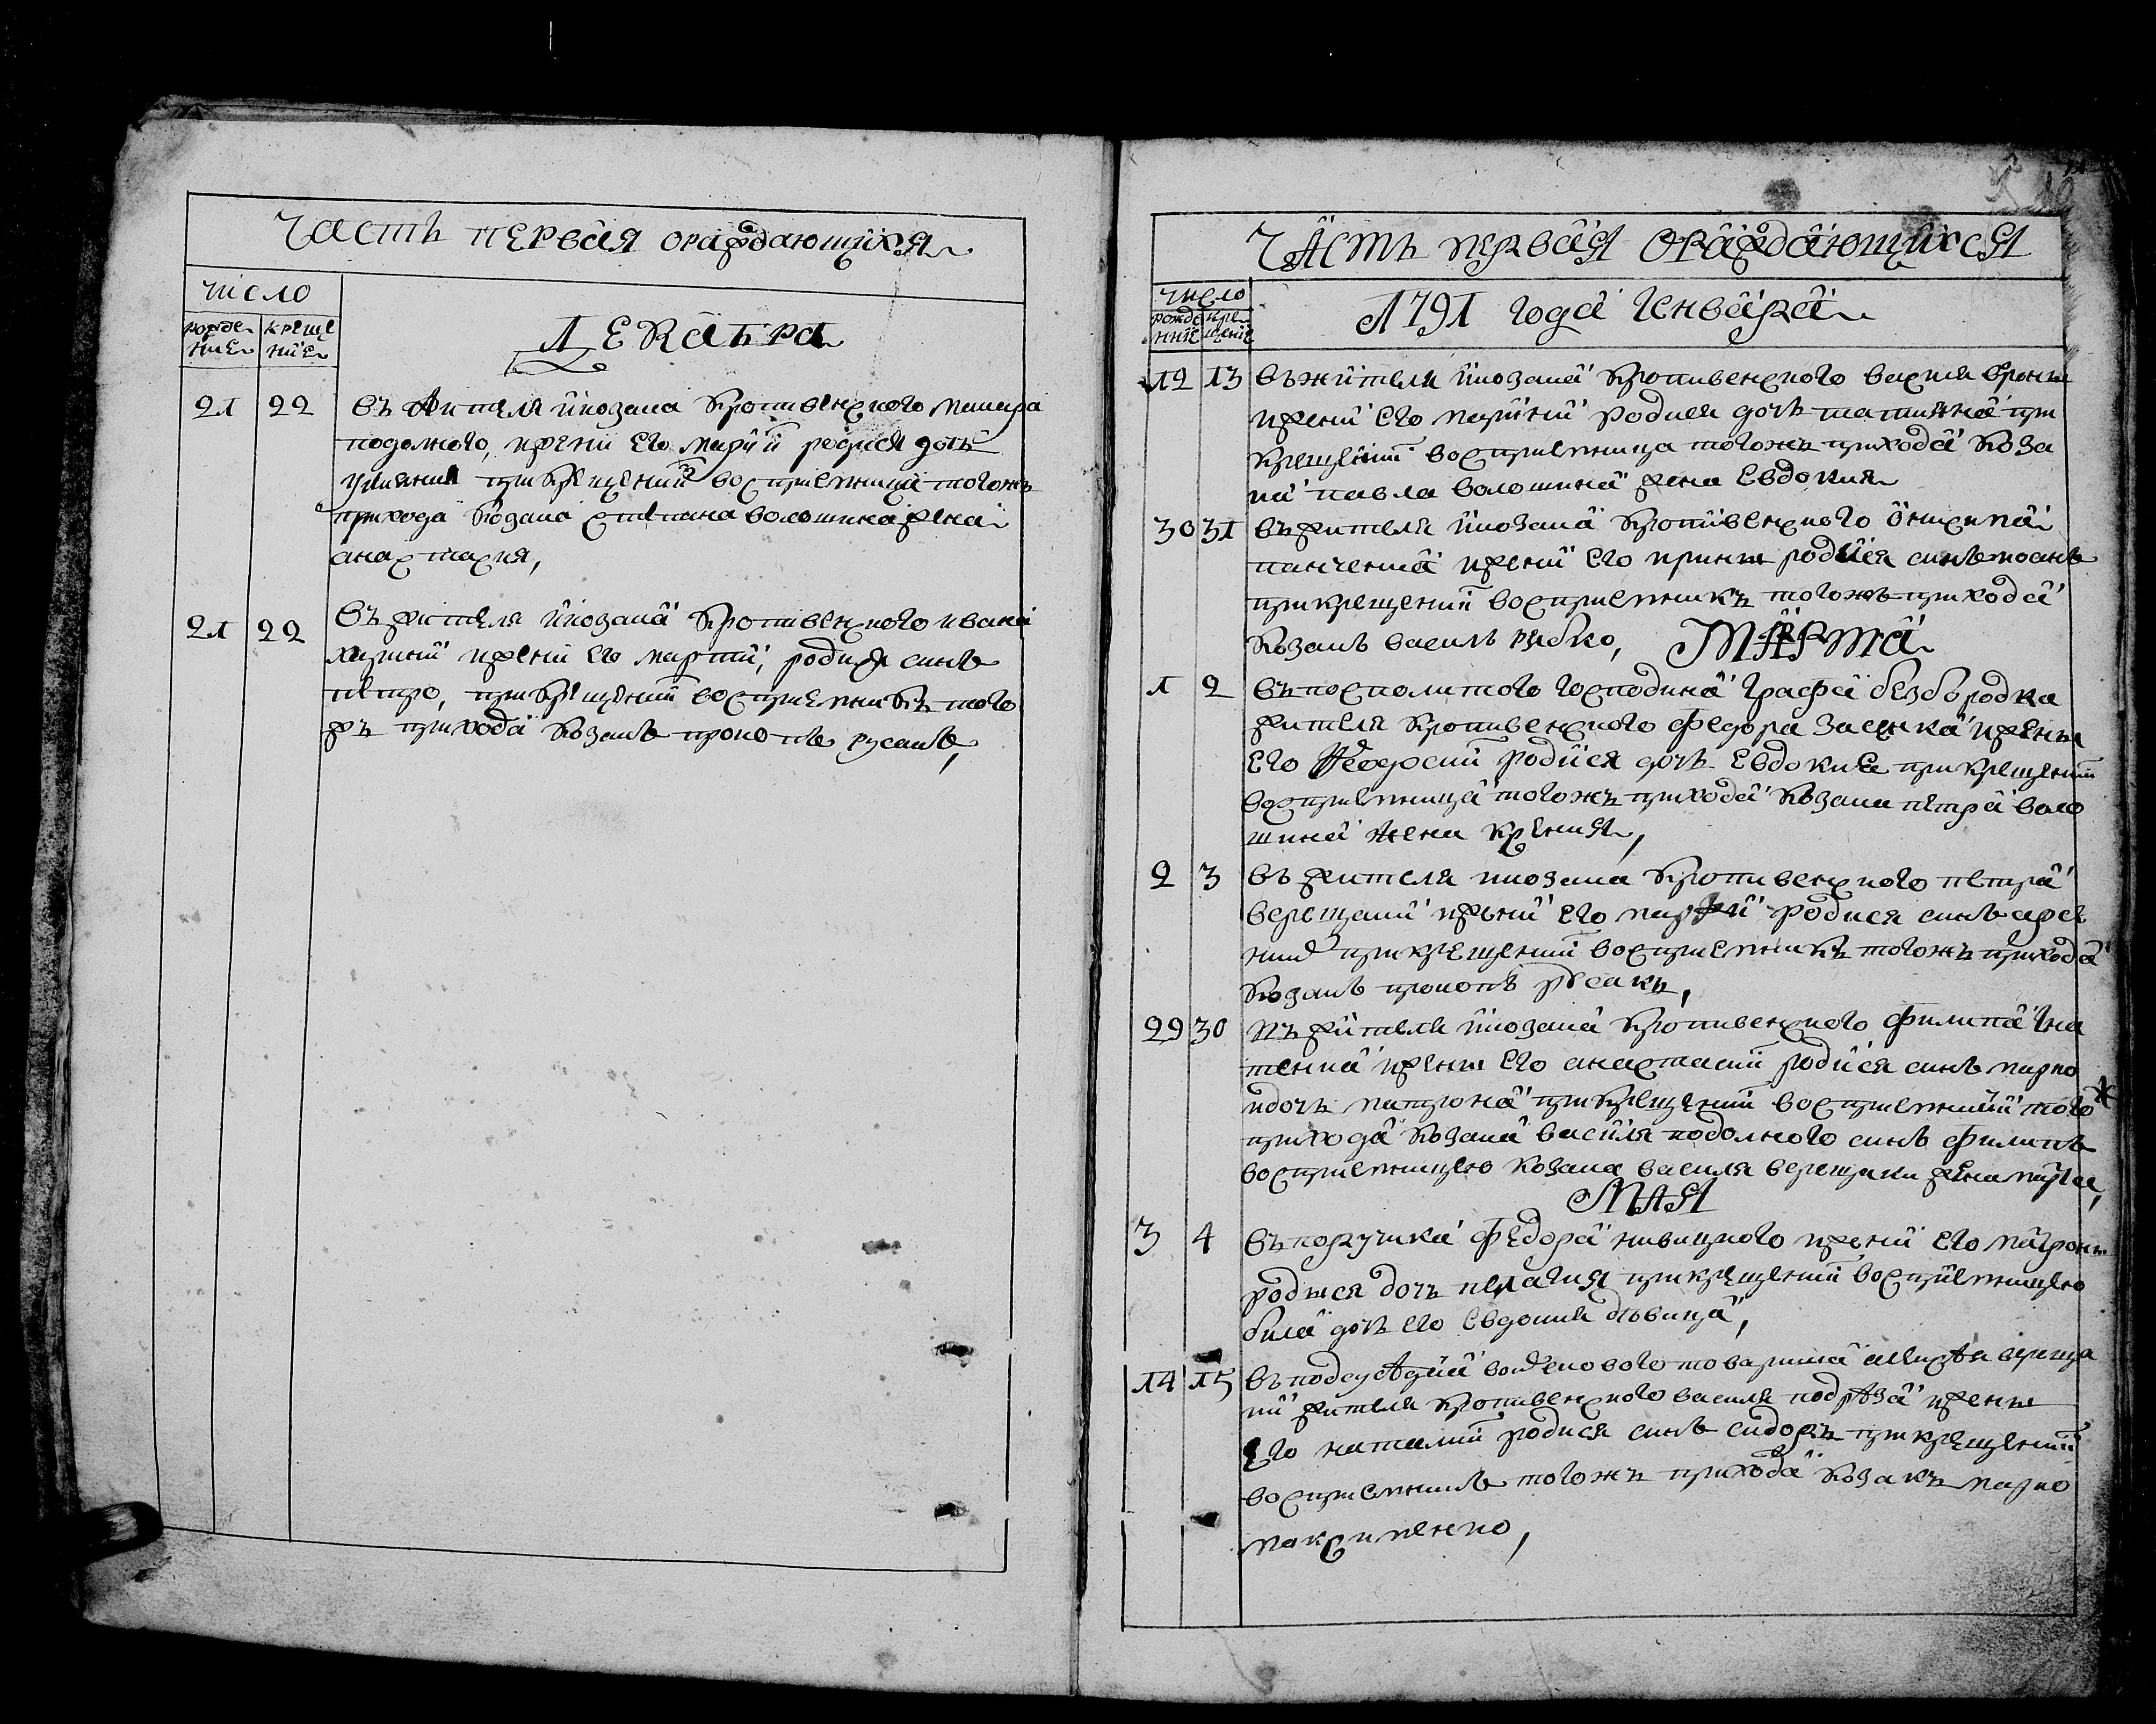 Часть первая ораждающихся
число
рожде крище
ние ние
Декабра
21 22 въ жителя икозака кропивенского макара
подолного, ижени его марїи родися дочь
улияния прикрещении восприемница тогожъ
прихода козака степана волошина жена
анастасия,
21 22 въ жителя икозака кропивенского ивана
ижени его марти, родися синъ
петро, прикрещении восприемникъ того
жъ прихода козакъ прокопъ русакъ,
Часть первая ораждающихся
число
рожде кре
ние щение
1791 года генвара
12 13 въжителя икозака кропивенского василя
ижени его марїи родися дочь татияна при
крещении восприемница тогожъ прихода коза
ка павла волошина жена Евдокия
30 31 въжителя икозака кропивенского онисима
панченка ижени его ирини родися синъ иоанъ
прикрещении восприемникъ тогожъ прихода
козакъ василь рибко,
Марта
1 2 въпосполитого господина графа безбородка
жителя кропивенского федора заенка ижени
его феодосии родися дочь Евдокие прикрещении
восприемница тогожъ прихода козака петра воло
шина жена ксения,
2 3 въ жителя икозака кропивенского петра
верещаки ижени его марфи родися синъ арсе
ний прикрещении восприемникъ тогожъ прихода
козакъ прокопъ русакъ,
29 30 въ жителя икозака кропивенского филипа гна
тенка ижени его анастасии родися синъ марко
идочь матрона прикрещении восприемники того ж
прихода козака василя подолного синъ филипъ
восприемницею козака василя верещаки жена марїя,
Мая
3 4 въпоручика федора нивицкого ижени его матрони
родися дочь пелагия прикрещении восприемницею
била дочь его Евдокия дѣвица,
14 15 въ подсусѣдка войскового товариша алексѣя вереща
ки жителя кропивенского василя подрѣза ижени
Его наталии родися синъ сидоръ прикрещении
восприемникъ тогожъ прихода козакъ марко
максименко,